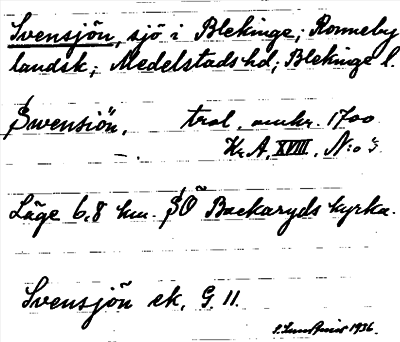 Svensjön, sjö i Blekinge; Ronneby
landsk; Medelstads hd; Blekinge l.
Swensiön, trol. omkr. 1700
Kr.A, XVIII, N:o 3.
Läge 6,8 km. SÖ Backaryds kyrka.
Svensjön ek. G 11.
1936.